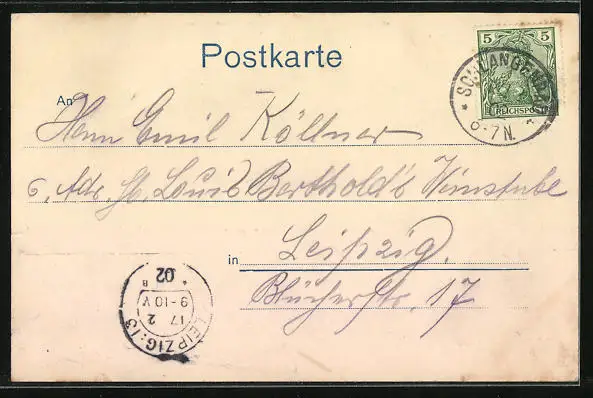 Postkarte
5 5
REICHSPOST
SCHLANGENBAD
6-7N.
An Herrn Emil Köllner
Adr. H. Louis Berthold's Weinstube
in Leipzig.
Blücherstr. 17
LEIPZIG.13
17 2
9-10V
02
B